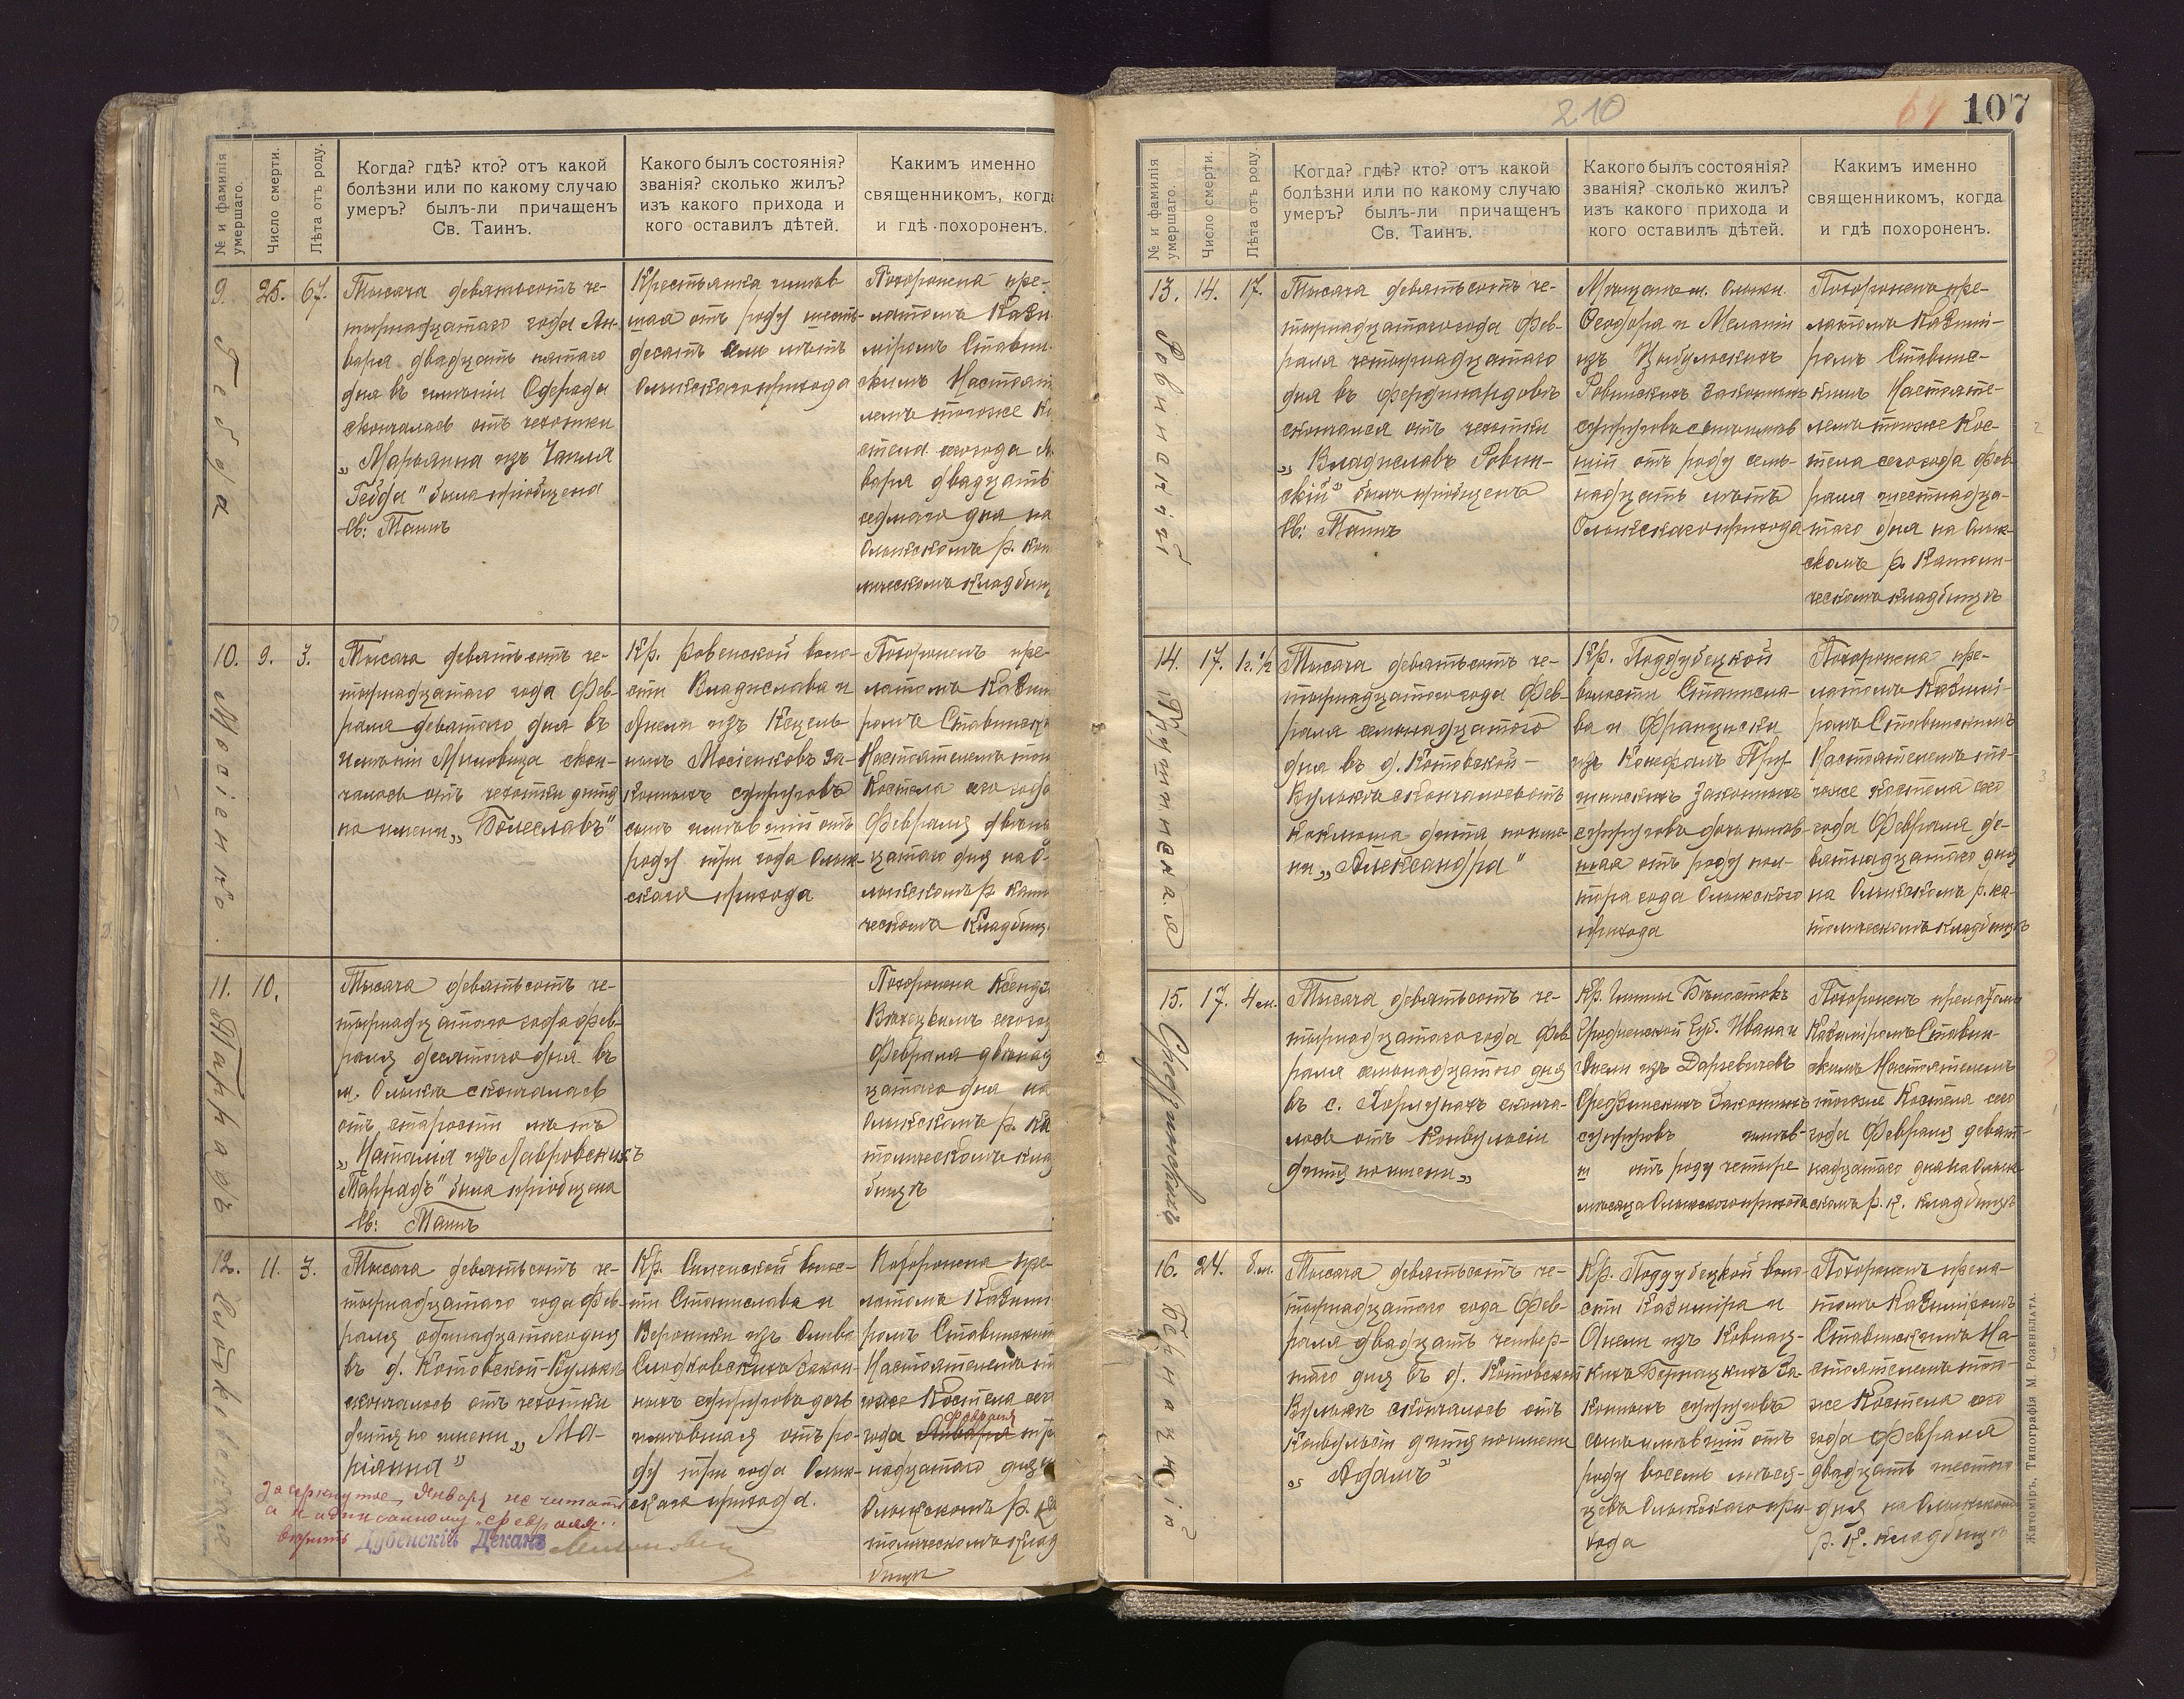 № и фамилія умершаго.
Число смерти.
Лѣта отъ роду.
Когда? гдѣ? кто? отъ какой
болѣзни или по какому случаю
умеръ? былъ-ли причащенъ
Св. Таинъ.
Какого былъ состоянія?
званія? сколько жилъ?
изъ какого прихода и
кого оставилъ дѣтей.
Какимъ именно
священникомъ, когда
и гдѣ похороненъ.
9.
25.
67.
Тысяча девятьсотъ че-
тырнадцатаго года Ян-
варя двадцать пятаго
дня въ имѣніи Одерады
скончалась отъ чахотки
„Марьянна изъ Чапля
Гебда" была пріобщена
Св: Таинъ
Крестьянка имѣв
шая отъ роду шесть-
десятъ семь лѣтъ
Олыкскаго прихода
Похоронена пре-
латомъ Кази
міромъ Ставин-
скимъ Настоят
лемъ тогоже Ко
стела сего года Ян
варя двадцать
седмаго дня на
Олыкскомъ р. Кат
лическомъ Кладбищ
10.
9.
3.
Мосіенко.
Тысяча девятьсотъ че-
тырнадцатаго года Фев-
раля девятаго дня въ
имѣніи скон-
чалось отъ чахотки дитя
по имени „Болеславъ"
Кр. Ровенской воло-
сти Владислава и
Анели изъ
Мосіенковъ За-
конныхъ супруговъ
сынъ имѣвшій отъ
роду три года Олык-
скаго прихода
Похороненъ пре-
латомъ Казим
ромъ Ставинск
Настоятелемъ тог
Костела сего года
Февраля двена
цатаго дня на О-
лыкскомъ р. Кат
ческомъ Кладбищ
11.
10.
Тысяча девятьсотъ че-
тырнадцатаго года Фев-
раля десятаго дня въ
м. Олыкѣ скончалась
отъ старости лѣтъ
„Наталія изъ Лавровскихъ
была пріобщена
Св: Таинъ
Похоронена Ксендз
сего год
Февраля двенад
цатаго дня на
Олыкскомъ р. Ка
толическомъ клад
бищѣ
12.
11.
3.
Тысяча девятьсотъ че-
тырнадцатаго года Фев-
раля одинадцатаго дня
въ д. Котовской-Вулькѣ
скончалось отъ чахотки
дитя по имени „Ма-
ріанна"
Кр. Силенской воло-
сти Станислава и
Вероники изъ
Закон-
ныхъ супруговъ дочь
имѣвшая отъ ро-
ду три года Олык-
скаго прихода.
Похоронена пре-
латомъ Казим
ромъ Ставинским
Настоятелемъ то
гоже Костела сего
февраля
года Января три
надцатаго дня на
Олыкскомъ р. Ка
толическомъ клад
бищѣ
зачеркнутое „Января" не читать
а надписанному „февраля"
вѣрить
Дубенскій Деканъ
210
64
107
№ и фамилія умершаго.
Число смерти.
Лѣта отъ роду.
Когда? гдѣ? кто? отъ какой
болѣзни или по какому случаю
умеръ? былъ-ли причащенъ
Св. Таинъ.
Какого былъ состоянія?
званія? сколько жилъ?
изъ какого прихода и
кого оставилъ дѣтей.
Какимъ именно
священникомъ, когда
и гдѣ похороненъ.
13.
14.
17.
Ровинскій
Тысяча девятьсотъ че-
тырнадцатаго года Фев-
раля четырнадцатаго
дня въ Фердинандовѣ
скончался отъ чахотки
„Владиславъ Ровин-
скій" былъ пріобщенъ
Св: Таинъ
Мѣщанъ м. Олыки
Феодора и Меланіи
изъ Цыбульскихъ
Ровинскихъ Законныхъ
супруговъ сынъ имѣв
шій отъ роду семь-
надцать лѣтъ
Олыкскаго прихода
Похороненъ пре-
латомъ Казимі-
ромъ Ставинс-
кимъ Настояте-
лемъ тогоже Кос-
тела сего года Фев
раля шестнадца-
таго дня на Олык-
скомъ р. Католи-
ческомъ кладбищѣ
14.
17.
1г. 1/2
Тысяча девятьсотъ че-
тырнадцатаго года Фев-
раля семнадцатаго
дня въ д. Котовской-
Вулькѣ скончалось отъ
коклюша дитя по име-
ни „Александра"
Кр. Поддубецкой
волости Станисла-
ва и Франциски
изъ
Законныхъ
супруговъ дочь имѣв-
шая отъ роду пол-
тора года Олыкскаго
прихода
Похоронена пре-
латомъ Казимі-
ромъ Ставинскимъ
Настоятелемъ то-
гоже Костела сего
года Февраля де-
вятнадцатаго дня
на Олыкскомъ р. ка-
толическомъ кладбищѣ
15.
17.
4 м.
Тысяча девятьсотъ че-
тырнадцатаго года Фев
раля семнадцатаго дня
въ с. сконча-
лось отъ Конвульсіи
дитя по имени „
Кр.
Гродненской Губ. Ивана и
Анели изъ Даржевичевъ
Средзинскихъ Законныхъ
супруговъ имѣв-
ш отъ роду четыре
мѣсяца Олыкскаго прихода
Похороненъ прелатомъ
Казиміромъ Ставин-
скимъ Настоятелемъ
тогоже Костела сего
года Февраля девят-
надцатаго дня на Олык
скомъ р. К. кладбищѣ
16.
24.
8 м.
Бернацкій
Тысяча девятьсотъ че-
тырнадцатаго года Фев-
раля двадцать четвер-
таго дня въ д. Котовской
Вулькѣ скончалось отъ
Конвульсіи дитя по имени
„Адамъ"
Кр. Поддубецкой воло-
сти Казиміра и
Анели изъ Ковнац-
кихъ Бернацкихъ За-
конныхъ супруговъ
сынъ имѣвшій отъ
роду восемь мѣся-
цевъ Олыкскаго при-
хода
Похороненъ прела-
томъ Казиміромъ
Ставинскимъ На-
стоятелемъ того-
же Костела сего
года Февраля
двадцать шестого
дня на Олыкском
р. К. кладбищѣ
Житоміръ, Типографія М. Розенблата.